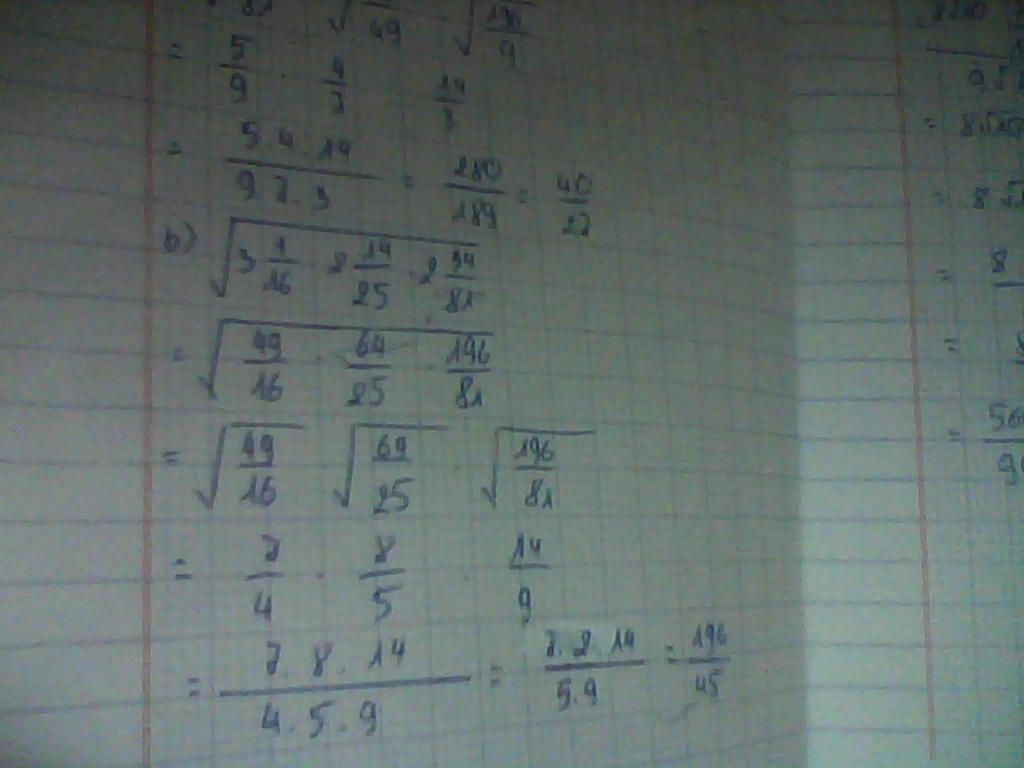 √ 81 · √ /49 · √196/9
= 5/9 · 4/7 · 14/3
= 5·4·14 / 9·7·3 = 280/189 = 40/27
b) √(3 1/16 · 2 14/25 · 2 34/81)
= √(49/16 · 64/25 · 196/81)
= √49/16 · √64/25 · √196/81
= 7/4 · 8/5 · 14/9
= 7·8·14 / 4·5·9 = 7·2·14 / 5·9 = 196/45
= 8
= 8